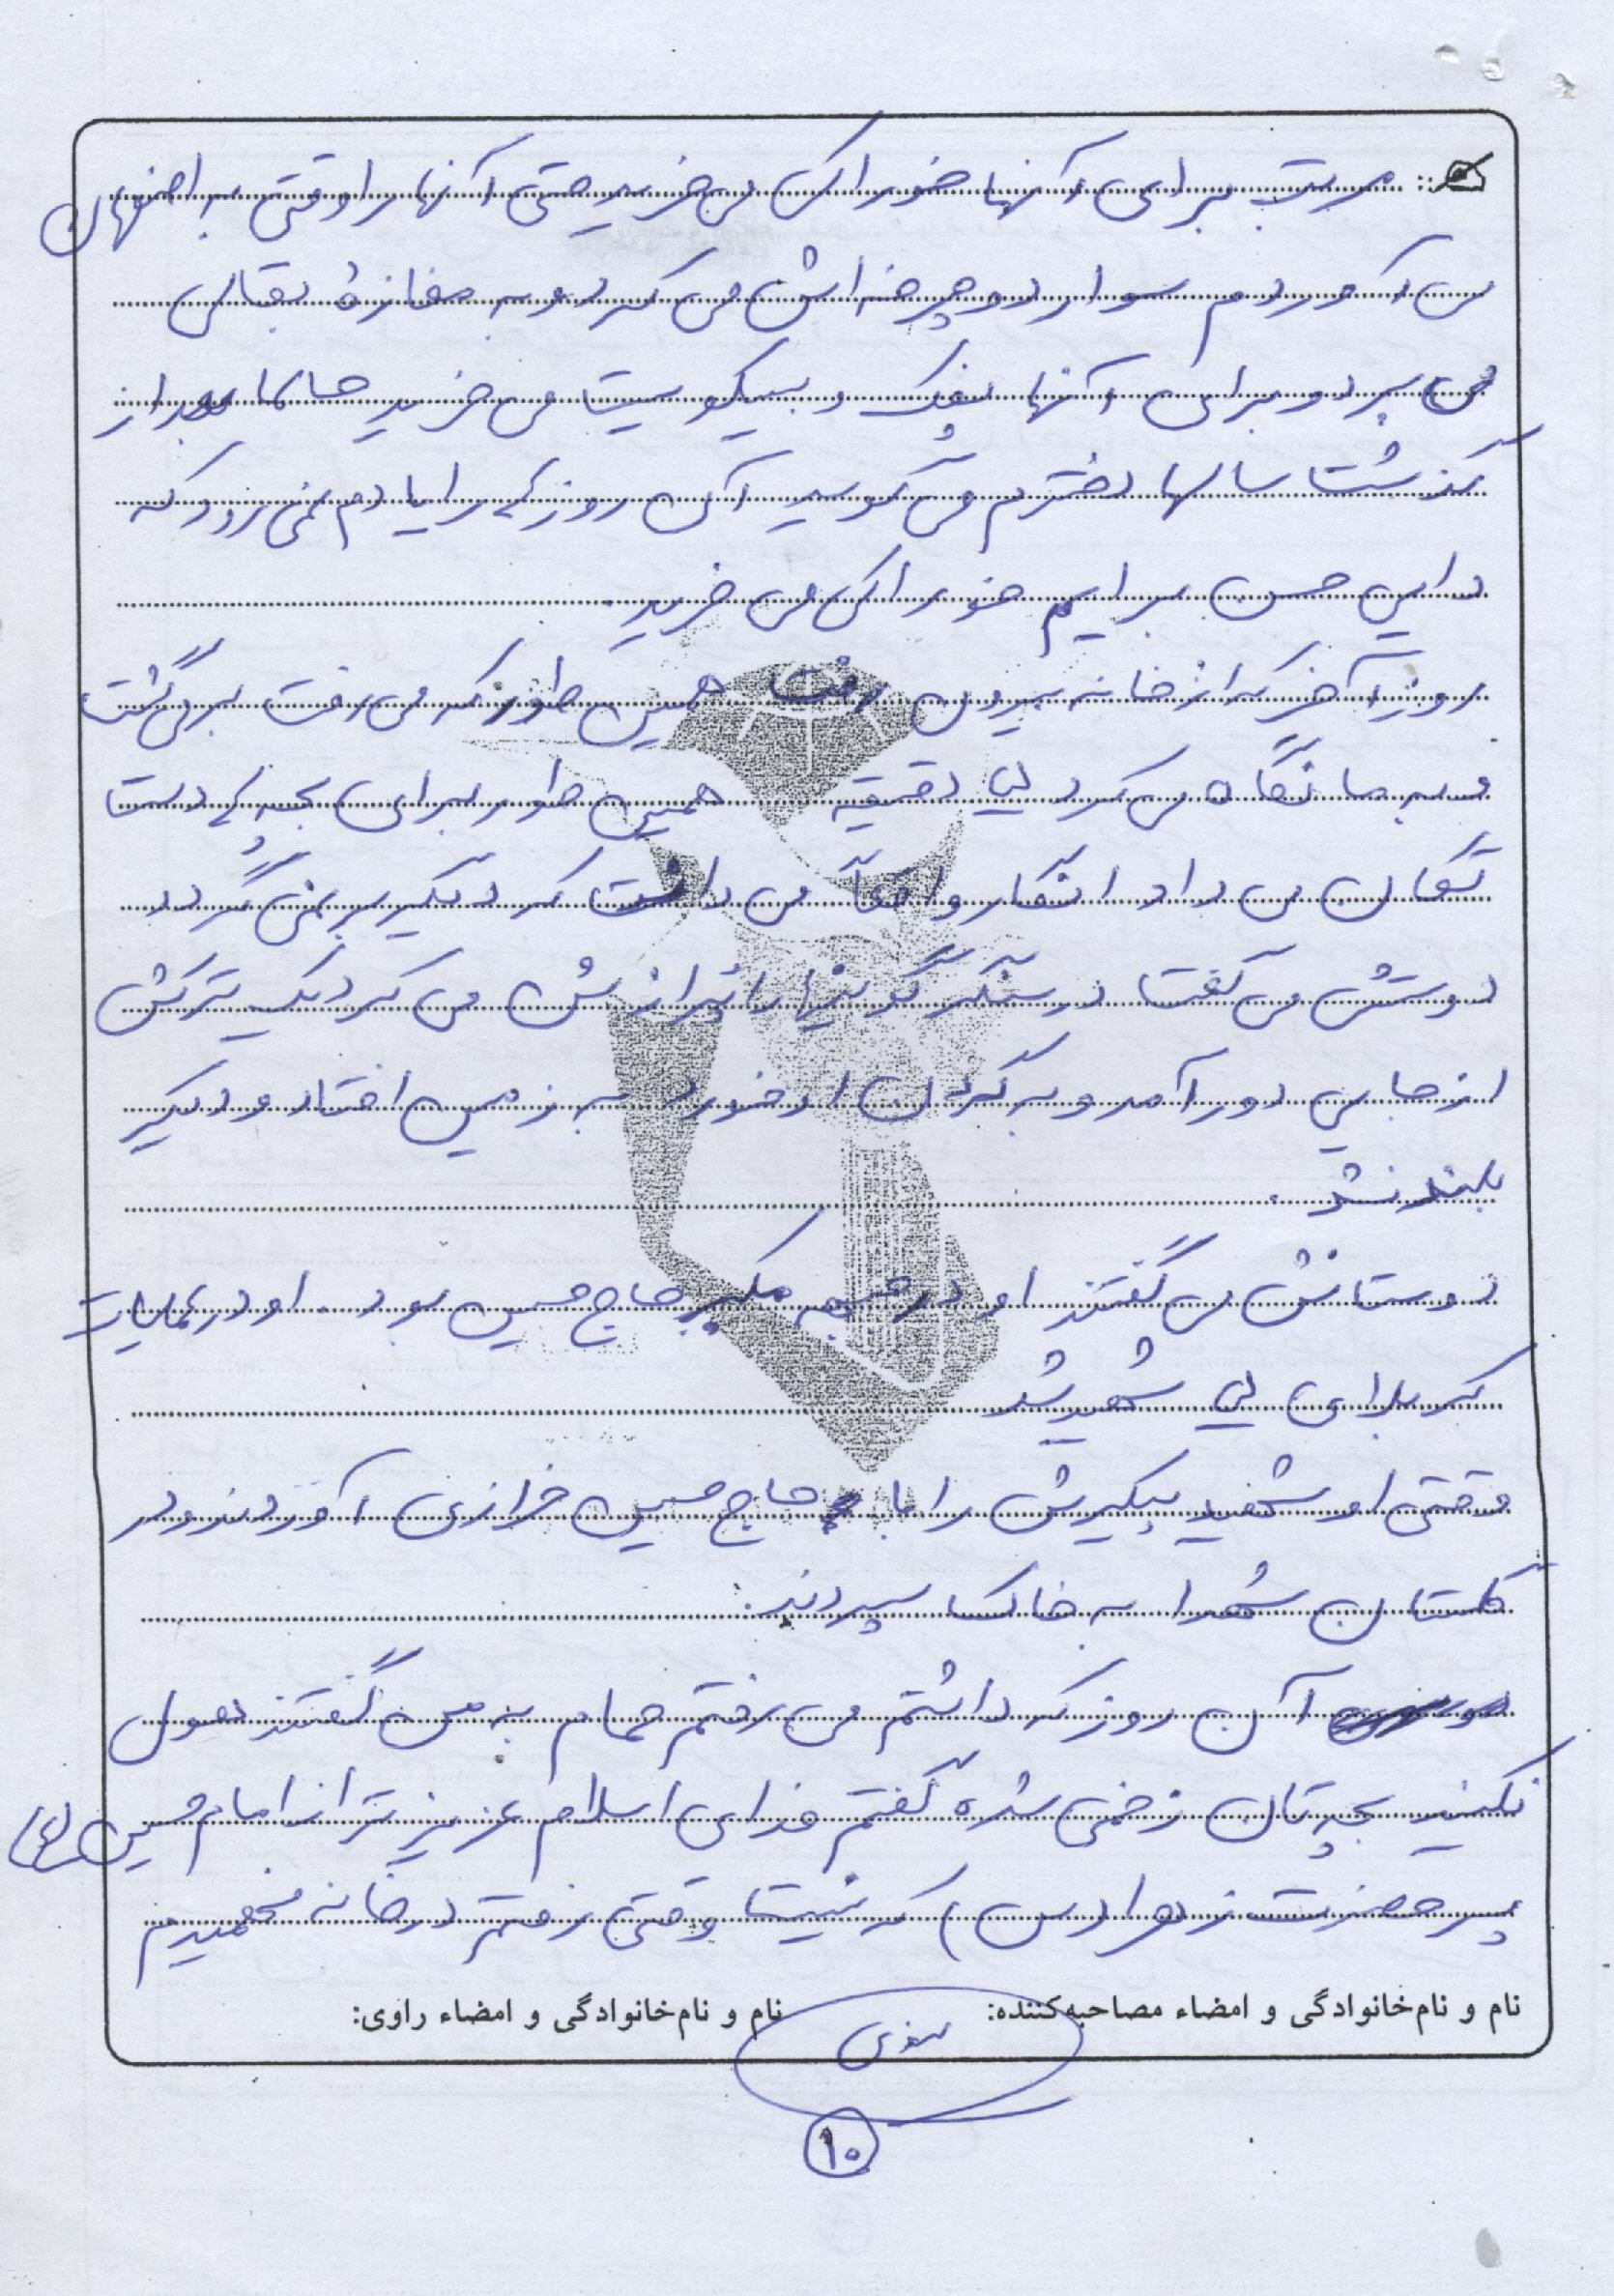 مرتب برای آنها خوراکی می خرید حتی آنها را وقتی به اصفهان
می آوردم سوار دوچرخه اش می کرد و به مغازهٔ بقالی
می برد و برای آنها پفک و بیسکویت می خرید حالا بعد از
گذشت سالها دخترم می گوید آن روزها را یادم نمی رود که
دایی حسن برایم خوراکی می خرید.
روز آخر که از خانه بیرون رفت همین طور که می رفت بر می گشت
و به ما نگاه می کرد هی دقیقه همین طور برای بچه ها دست
تکان می داد انگار واقعاً می دانست که دیگر بر نمی گردد
دوستش می گفت در سنگر گونیها را می کرد یک ترکش
از جایی دور آمد و به گردن او خورد به زمین افتاد و دیگر
بلند نشد.
دوستانش می گفتند او در جبهه مکبر حاج حسین بود. او در عملیات
کربلای شهید شد
وقتی او شهید پیکرش را با حاج حسین خرازی آوردند و در
گلستان شهدا به خاک سپردند.
آن روز که داشتم می رفتم حمام به من گفتند هول
نکنید بچه تان زخمی شده گفتم فدای اسلام عزیز تر از امام حسین (ع)
پسر حضرت زهرا (س) که نیست وقتی رفتم در خانه فهمیدم
نام و نام‌خانوادگی و امضاء مصاحبه‌کننده: نام و نام‌خانوادگی و امضاء راوی:
۱۰